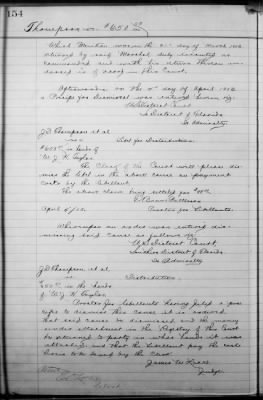 154
Thompson vs. $655.00
Which Monition was on the 31st day of March 1902
returned by said Marshal duly executed as
commanded and with his return thereon
is of record in this Court.
Afterwards on the 4th day of April 1902
a Precipe for Dismissal was entered herein
US District Court
So District of Florida
In Admiralty
J.D. Thompson et al
vs
Libel for Distribution
in hands of
W. J. H. Taylor
The Clerk of this Court will please dis-
miss the libel in the above cause on payment
costs by the Libellant.
The above claim being settled for
Proctor for Libellants
April 5/02.
Whereupon an order was entered dis-
missing said cause as follows
US District Court,
Southern District of Florida
In Admiralty
J.D. Thompson et al
vs
Distribution
in the hands
of W. J. H. Taylor
Proctor for Libellants having filed a pre-
cipe to dismiss this cause it is ordered
that said cause be dismissed and the money
under attachment in the Registry of this Court
be returned to party in whose hands it was
attached and that the Libellant pay the costs
herein to be taxed by the Clerk.
James W. Locke
Judge